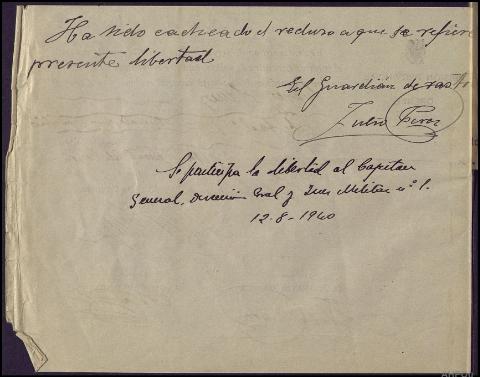 Ha sido cacheado el recluso a que se refiere
presente libertad
El Guardián de rastr
Julio Perez
Se participa la libertad al Capitan
General, Dirección Gral y Juez Militar nº 1.
12-8-1940